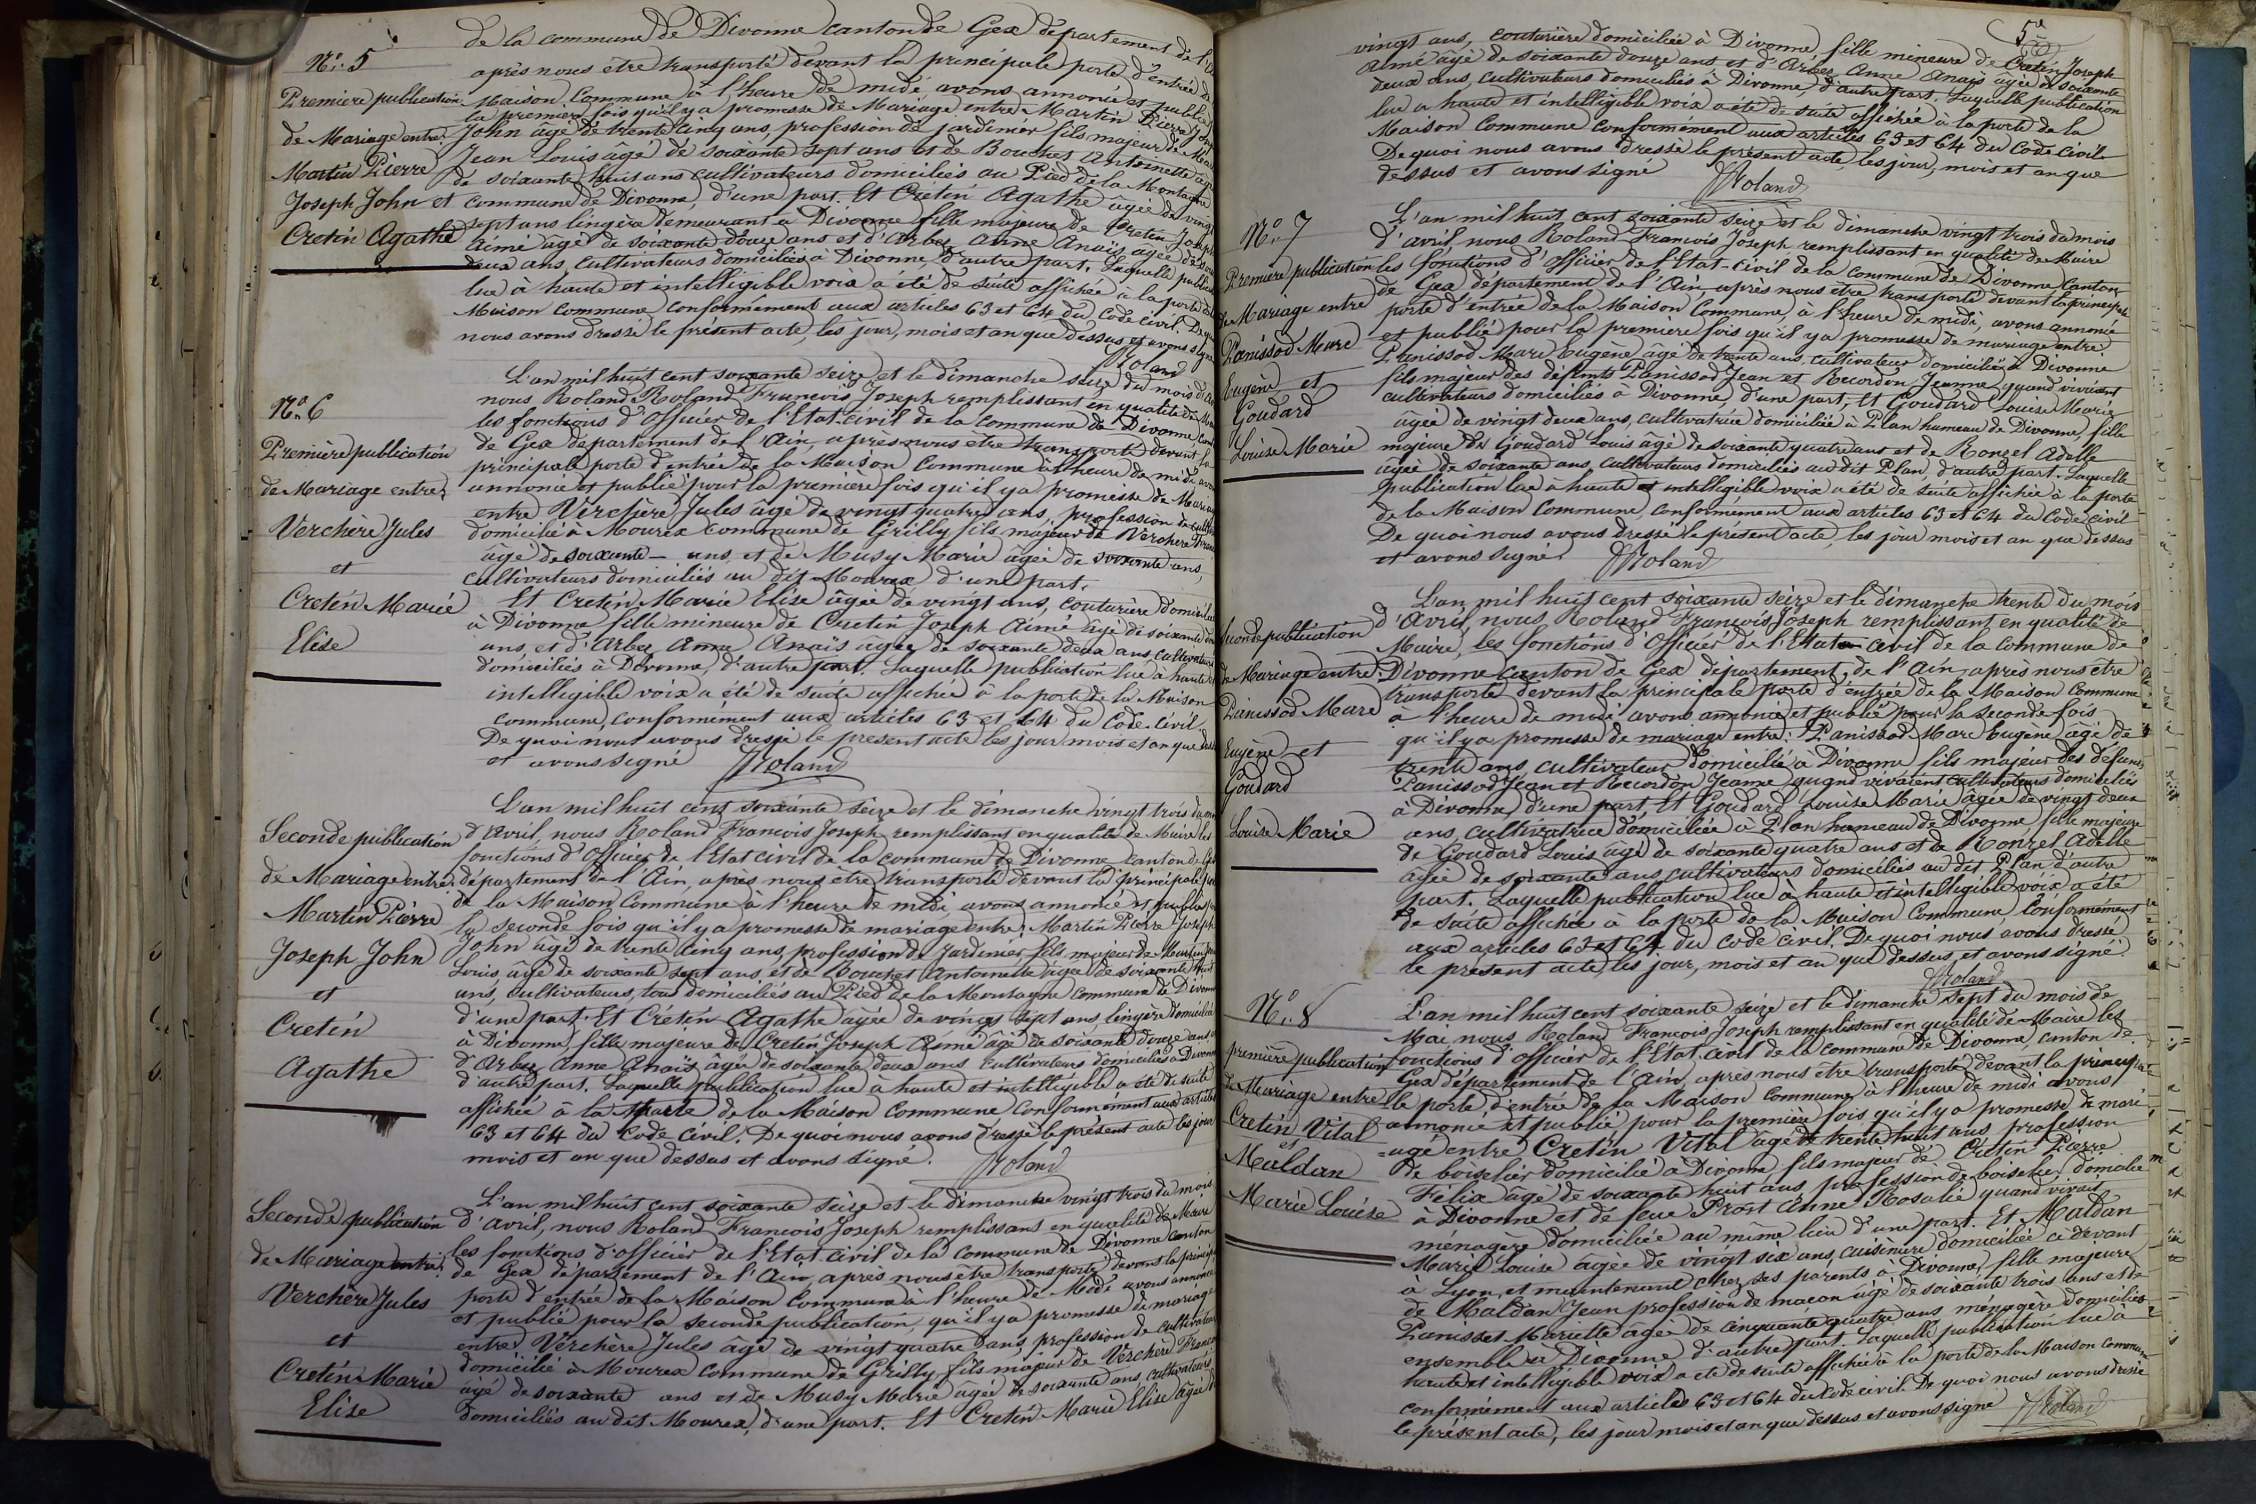 de la commune de Divonne canton de Gex département de l'
N° 5
après nous être transporté devant la principale porte d'entrée de
Première publication
Maison Commune à l'heure de midi, avons annoncé et publié
la première fois qu'il y a promesse de Mariage entre Martin Pierre
de Mariage entre
John âgé de trente cinq ans, profession de jardinier fils majeur de
Martin Pierre
Jean Louis âgé de soixante sept ans et de Bouchet Antoinette
de soixante huit ans cultivateurs domiciliés au Pied de la Montagne
Joseph John et
commune de Divonne, d'une part. Et Cretin Agathe âgée de vingt
Cretin Agathe
sept ans lingère demeurant à Divonne fille majeure de Cretin Joseph
Aimé âgé de soixante douze ans et d'Arbey Anne Anaïs âgée de
deux ans, cultivateurs domiciliés à Divonne d'autre part. Laquelle
lue à haute et intelligible voix a été de suite affichée à la porte de
Maison commune conformément aux articles 63 et 64 du Code civil.
nous avons dressé le présent acte, les jour, mois et an que dessus et avons signé
Roland
L'an mil huit cent soixante seize et le dimanche seize du mois
N° 6
nous Roland Roland François Joseph remplissant en qualité de
les fonctions d'Officier de l'Etat-civil de la Commune de Divonne
Première publication
de Gex département de l'Ain, après nous être transporté devant la
principale porte d'entrée de la Maison Commune à l'heure de midi
de Mariage entre
annoncé et publié pour la première fois qu'il y a promesse de Mariage
entre Verchère Jules âgé de vingt quatre ans, profession de
Verchère Jules
domicilié à Mourex commune de Grilly fils majeur de Verchère
et
âgé de soixante ans, et de Musy Marie âgée de soixante ans,
cultivateurs domiciliés au dit Mourex d'une part.
Cretin Marie
Et Cretin Marie Elise âgée de vingt ans, couturière domiciliée
à Divonne fille mineure de Cretin Joseph Aimé âgé de soixante
Elise
ans, et d'Arbey Anne Anaïs âgée de soixante deux ans, cultivateurs
domiciliés à Divonne, d'autre part. Laquelle publication lue à haute
intelligible voix a été de suite affichée à la porte de la Maison
commune, conformément aux articles 63 et 64 du Code civil
De quoi nous avons dressé le présent acte les jour mois et an que
et avons signé Roland
L'an mil huit cent soixante seize et le dimanche vingt trois
Seconde publication
d'Avril, nous Roland François Joseph remplissant en qualité de Maire les
fonctions d'Officier de l'Etat civil de la commune de Divonne canton de
de Mariage entre
département de l'Ain, après nous être transporté devant la principale
de la Maison Commune à l'heure de midi, avons annoncé et publié
Martin Pierre
la seconde fois qu'il y a promesse de mariage entre Martin Pierre Joseph
Joseph John
John âgé de trente cinq ans, profession de Jardinier fils majeur de Martin
Louis âgé de soixante sept ans et de Bouchet Antoinette âgée de soixante huit
et
ans, cultivateurs, tous domiciliés au Pied de la Montagne commune de
Cretin
d'une part. Et Crétin Agathe âgée de vingt sept ans, lingère
à Divonne, fille majeure de Cretin Joseph Aimé âgé de soixante douze ans
Agathe
d'Arbey Anne Anaïs âgée de soixante deux ans cultivateurs domiciliés à Divonne
d'autre part. Laquelle publication lue à haute et intelligible a été de suite
affichée à la porte de la Maison commune conformément aux articles
63 et 64 du Code civil. De quoi nous avons dressé le présent acte les jour
mois et an que dessus et avons signé. Roland
L'an mil huit cent soixante seize et le dimanche vingt trois du mois
Seconde publication
d'avril, nous Roland François Joseph remplissant en qualité de Maire
les fonctions d'officier de l'Etat civil de la commune de Divonne canton
de Mariage entre
de Gex département de l'Ain, après nous être transporté devant la
Verchère Jules
porte d'entrée de la Maison Commune à l'heure de Midi avons annoncé
et publié pour la seconde publication, qu'il y a promesse de mariage
et
entre Verchère Jules âgé de vingt quatre ans, profession de cultivateur
Cretin Marie
domicilié à Mourex commune de Grilly fils majeur de Verchère
âgé de soixante ans et de Musy Marie âgée de soixante ans, cultivateurs
Elise
domiciliés au dit Mourex, d'une part. Et Cretin Marie Elise âgée
5
vingt ans, couturière domiciliée à Divonne, fille mineure de Cretin Joseph
Aimé âgé de soixante douze ans et d'Arbey Anne Anaïs âgée de soixante
deux ans, cultivateurs domiciliés à Divonne, d'autre part. Laquelle publication
lue à haute et intelligible voix a été de suite affichée à la porte de la
Maison Commune conformément aux articles 63 et 64 du Code civil
De quoi nous avons dressé le présent acte, les jour, mois et an que
dessus et avons signé Roland
L'an mil huit cent soixante seize et le dimanche vingt trois du mois
N° 7
d'avril, nous Roland François Joseph remplissant en qualité de Maire
Première publication
les fonctions d'Officier de l'Etat-civil de la commune de Divonne Canton
de Gex département de l'Ain, après nous être transporté devant la principale
de Mariage entre
porte d'entrée de la Maison Commune, à l'heure de midi, avons annoncé
et publié pour la première fois qu'il y a promesse de mariage entre
Panissod Marc
Panissod Marc Eugène âgé de trente ans cultivateur domicilié à Divonne
Eugène et
fils majeur des défunts Panissod Jean et Recordon Jeanne quand vivaient
Goudard
cultivateurs domiciliés à Divonne, d'une part, Et Goudard Louise Marie
âgée de vingt deux ans, cultivatrice domiciliée à Plan hameau de Divonne, fille
Louise Marie
majeure de Goudard Louis âgé de soixante quatre ans et de Adelle
âgée de soixante ans, cultivateurs domiciliés au dit Plan d'autre part. Laquelle
publication lue à haute et intelligible voix a été de suite affichée à la porte
de la Maison Commune, conformément aux articles 63 et 64 du Code civil
De quoi nous avons dressé le présent acte, les jour mois et an que dessus
et avons signé. Roland
L'an mil huit cent soixante seize et le dimanche trente du mois
Seconde publication
d'Avril, nous Roland François Joseph remplissant en qualité de
Maire, les fonctions d'Officier de l'Etat civil de la commune de
de Mariage entre
Divonne canton de Gex département de l'Ain, après nous être
Panissod Marc
transporté devant la principale porte d'entrée de la Maison commune
à l'heure de midi avons annoncé et publié pour la seconde fois
Eugène et
qu'il y a promesse de mariage entre: Panissod Marc Eugène âgé de
Goudard
trente ans, cultivateur domicilié à Divonne fils majeur des défunts
Panissod Jean et Recordon Jeanne quand vivaient cultivateurs domiciliés
à Divonne, d'une part, Et Goudard Louise Marie âgée de vingt deux
Louise Marie
ans, cultivatrice domiciliée à Plan hameau de Divonne fille majeure
de Goudard Louis âgé de soixante quatre ans et de Adelle
âgée de soixante ans, cultivateurs domiciliés au dit Plan, d'autre
part. Laquelle publication lue à haute et intelligible voix a été
de suite affichée à la porte de la Maison Commune, Conformément
aux articles 63 et 64 du Code civil. De quoi nous avons dressé
le présent acte, les jour, mois et an que dessus, et avons signé.
Roland
N° 8
L'an mil huit cent soixante seize et le dimanche sept du mois de
Mai nous Roland François Joseph remplissant en qualité de Maire les
première publication
fonctions d'officier de l'Etat-civil de la commune de Divonne, canton de
Gex département de l'Ain, après nous être transporté devant la
de Mariage entre
porte d'entrée de la Maison Commune, à l'heure de midi avons
Cretin Vital
annoncé et publié pour la première fois qu'il y a promesse de mari-
et
=age entre Cretin Vital âgé de trente huit ans profession
Maldan
de boisselier domicilié à Divonne fils majeur de Crétin Pierre
Marie Louise
Félix âgé de soixante huit ans, profession de boiselier domicilié
à Divonne et de feue Prost Anne Rosalie quand vivait
ménagère domiciliée au même lieu d'une part. Et Maldan
Marie Louise âgée de vingt six ans, cuisinière domiciliée ci devant
à Lyon, et maintenant chez ses parents à Divonne, fille majeure
de Maldan Jean profession de maçon âgé de soixante trois ans et de
Panisset Mariette âgée de cinquante quatre ans ménagère domiciliés
ensemble à Divonne d'autre part. Laquelle publication lue à
haute et intelligible voix a été de suite affichée à la porte de la Maison commune
conformément aux articles 63 et 64 du Code civil De quoi nous avons dressé
le présent acte, les jour mois et an que dessus et avons signé Roland